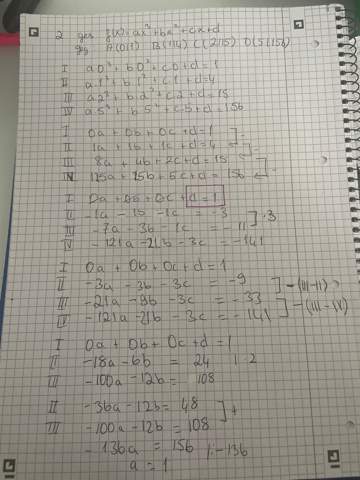 2 ges f(x)=ax³+bx²+cx+d
geg A(0|1) B(1|4) C(2|15) D(5|156)
I a·0³+b·0²+c·0+d=1
II a·1³+b·1²+c·1+d=4
III a·2³+b·2²+c·2+d=15
IV a·5³+b·5²+c·5+d=156
I 0a+0b+0c+d=1
II 1a+1b+1c+d=4
III 8a+4b+2c+d=15
IV 125a+25b+5c+d=156
I 0a+0b+0c+d=1
II -1a-1b-1c = -3 ]·3
III -7a-3b-1c = -11
IV -121a-21b-3c = -141
I 0a+0b+0c+d=1
II -3a-3b-3c = -9 ]-(III-II)
III -21a-9b-3c = -33 ]-(III-II)
IV -121a-21b-3c = -141
I 0a+0b+0c+d=1
II -18a-6b = 24 |·2
III -100a-12b = 108
II -36a-12b = 48 ]+
III -100a-12b = 108
-136a = 156 |:-136
a=1